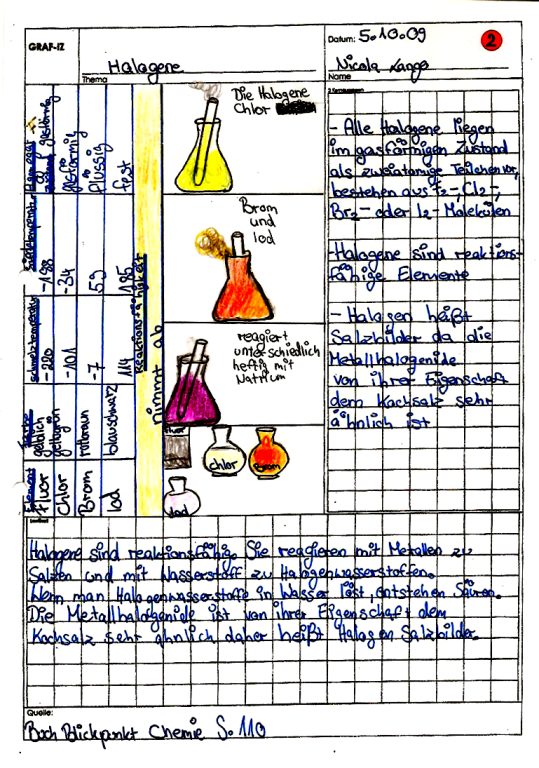 GRAF-IZ
Halogene
Thema
Datum: 5.10.09
2
Nicola Lange
Name
Element
Farbe
Schmelztemperatur
Siedetemperatur
Fluor gelblich -220 -188 gasförmig
Chlor gelbgrün -101 -34 gasförmig
Brom rotbraun -7 59 flüssig
Iod blauschwarz 114 185 fest
Reaktionsfähigkeit
nimmt ab
Die Halogene
Chlor
Brom
und
Iod
reagiert
unterschiedlich
heftig mit
Natrium
Fluor
Chlor
Brom
Iod
- Alle Halogene liegen
im gasförmigen Zustand
als zweiatomige Teilchen vor,
bestehen aus F2-, Cl2-,
Br2- oder I2- Molekülen
-Halogene sind reaktions-
fähige Elemente
- Halogen heißt
Salzbilder da die
Metallhalogenide
von ihrer Eigenschaft
dem Kochsalz sehr
ähnlich ist
Halogene sind reaktionsfähig. Sie reagieren mit Metallen zu
Salzen und mit Wasserstoff zu Halogenwasserstoffen.
Wenn man Halogenwasserstoffe in Wasser löst, entstehen Säuren.
Die Metallhalogenide ist von ihrer Eigenschaft dem
Kochsalz sehr ähnlich daher heißt Halogen Salzbilder.
Quelle:
Buch Blickpunkt Chemie S. 110